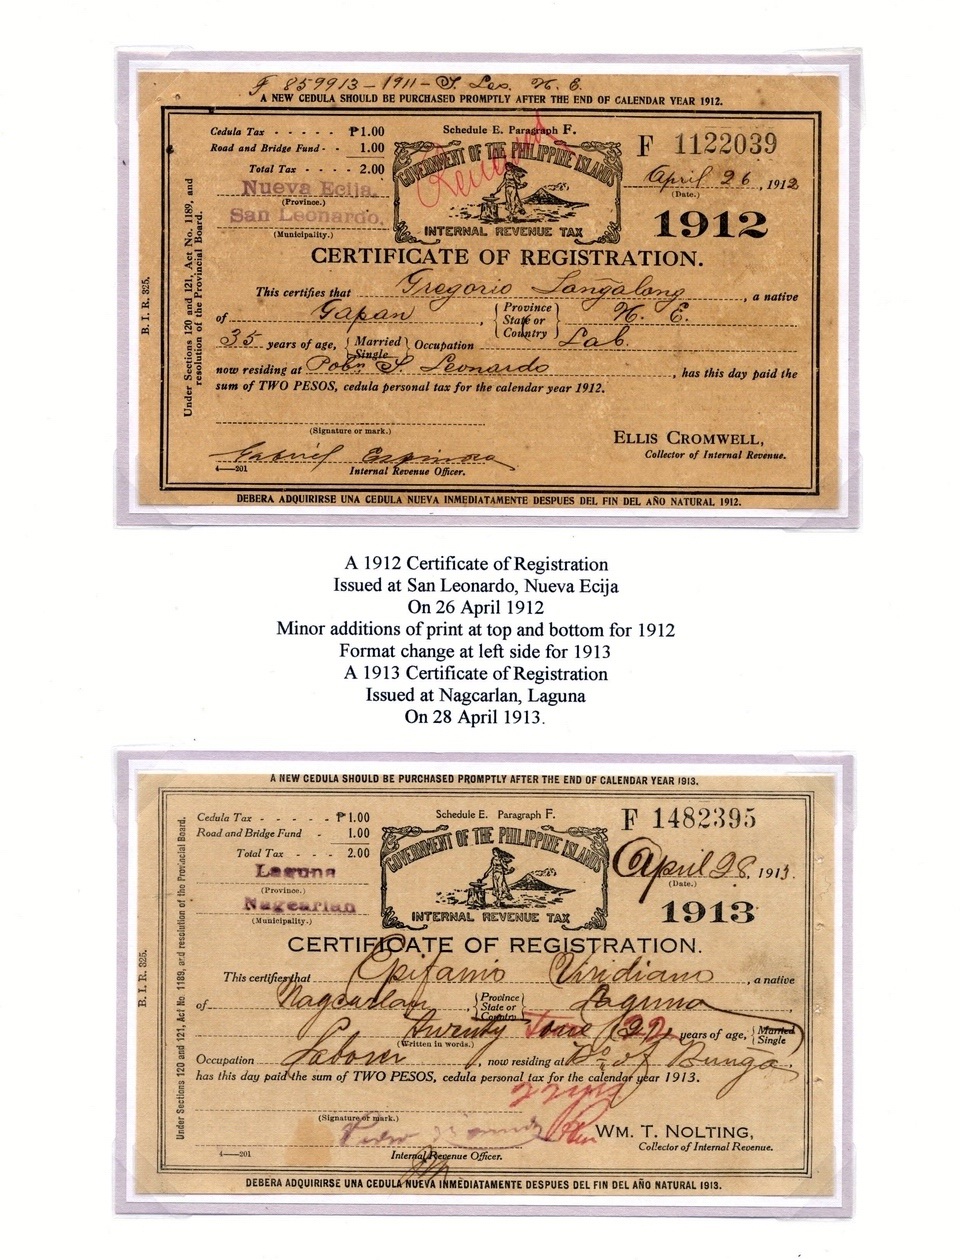 F 859913 - 1911 - S. Leo. N. E.
A NEW CEDULA SHOULD BE PURCHASED PROMPTLY AFTER THE END OF CALENDAR YEAR 1912.
Cedula Tax - - - - - ₱1.00
Road and Bridge Fund - - 1.00
Total Tax - - - - 2.00
Nueva Ecija.
(Province.)
San Leonardo.
(Municipality.)
Schedule E. Paragraph F.
GOVERNMENT OF THE PHILIPPINE ISLANDS
INTERNAL REVENUE TAX
F 1122039
April 26, 1912
(Date.)
1912
B. I. R. 325.
Under Sections 120 and 121, Act No. 1189, and
resolution of the Provincial Board.
CERTIFICATE OF REGISTRATION.
This certifies that Gregorio Langalong, a native
of Gapan, { Province State or Country } N. E.
35 years of age, { Married Single } Occupation Lab.
now residing at Pobn S. Leonardo, has this day paid the
sum of TWO PESOS, cedula personal tax for the calendar year 1912.
(Signature or mark.)
ELLIS CROMWELL,
Collector of Internal Revenue.
Gabriel Espinosa
4—201
Internal Revenue Officer.
DEBERA ADQUIRIRSE UNA CEDULA NUEVA INMEDIATAMENTE DESPUES DEL FIN DEL AÑO NATURAL 1912.
A 1912 Certificate of Registration
Issued at San Leonardo, Nueva Ecija
On 26 April 1912
Minor additions of print at top and bottom for 1912
Format change at left side for 1913
A 1913 Certificate of Registration
Issued at Nagcarlan, Laguna
On 28 April 1913.
A NEW CEDULA SHOULD BE PURCHASED PROMPTLY AFTER THE END OF CALENDAR YEAR 1913.
Cedula Tax - - - - - ₱1.00
Road and Bridge Fund - 1.00
Total Tax - - - 2.00
Laguna
(Province.)
Nagcarlan
(Municipality.)
Schedule E. Paragraph F.
GOVERNMENT OF THE PHILIPPINE ISLANDS
INTERNAL REVENUE TAX
F 1482395
April 28, 1913.
(Date.)
1913
B. I. R. 325.
Under Sections 120 and 121, Act No. 1189, and resolution of the Provincial Board.
CERTIFICATE OF REGISTRATION.
This certifies that Epifanio Viridiano, a native
of Nagcarlan, { Province State or Country } Laguna
Twenty (22) years of age, { Married Single }
(Written in words.)
Occupation Laborer, now residing at Bo. of Bunga.
has this day paid the sum of TWO PESOS, cedula personal tax for the calendar year 1913.
(Signature or mark.)
WM. T. NOLTING,
Collector of Internal Revenue.
4—201
Internal Revenue Officer.
DEBERA ADQUIRIRSE UNA CEDULA NUEVA INMEDIATAMENTE DESPUES DEL FIN DEL AÑO NATURAL 1913.